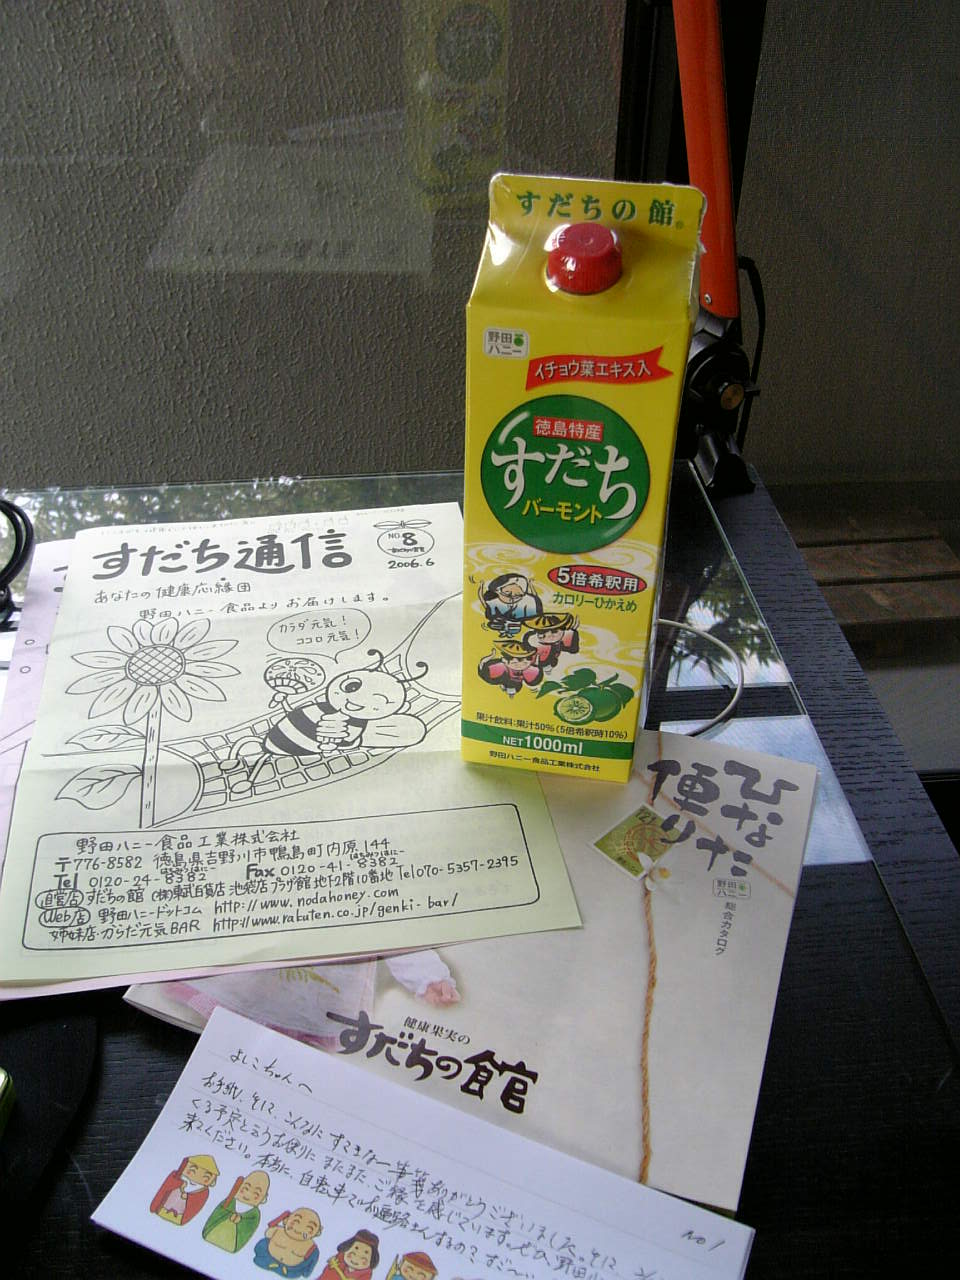 すだちの館
野田
ハニー
イチョウ葉エキス入
徳島特産
すだち
バーモント
5倍希釈用
カロリーひかえめ
果汁飲料:果汁50%(5倍希釈時10%)
NET1000ml
野田ハニー食品工業株式会社
すだち通信
NO.8
2006.6
あなたの健康応縁団
野田ハニー食品よりお届けします。
カラダ元気!
ココロ元気!
野田ハニー食品工業株式会社
〒776-8582 徳島県吉野川市鴨島町内原144
Tel 0120-24-8382 Fax 0120-41-8382
直営店 すだちの館 (株)東武百貨店 池袋店プラザ館 地下2階10番地 Tel 070-5357-2395
Web店 野田ハニードットコム http://www.nodahoney.com
姉妹店・からだ元気BAR http://www.rakuten.co.jp/genki-bar/
ひなた
便り
野田
ハニー
総合カタログ
健康果実の
すだちの館
よしこちゃんへ
お手紙、そして、こんなにすてきな一筆箋ありがとうございました。そして
くる予定と言うお便りに またまた、ご縁を感じています。ぜひ、野田ハ
来てください。本当に、自転車でお遍路さんするの?すご〜
No 1